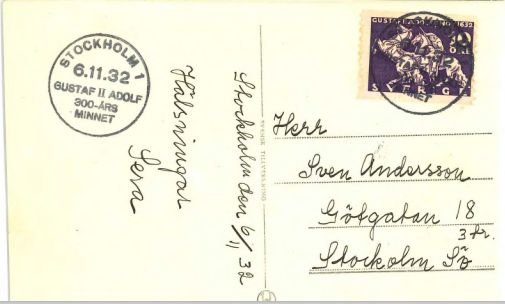 STOCKHOLM 1
6.11.32
GUSTAF II ADOLF
300-ÅRS
MINNET
Hälsningar
Sera
Stockholm den 6/11 32
SVENSK TILLVERKNING
GUSTAF 1632
10
ÖRE
SVERIGE
MINNET
Herr
Sven Andersson
Götgatan 18
3 tr.
Stockholm Sö